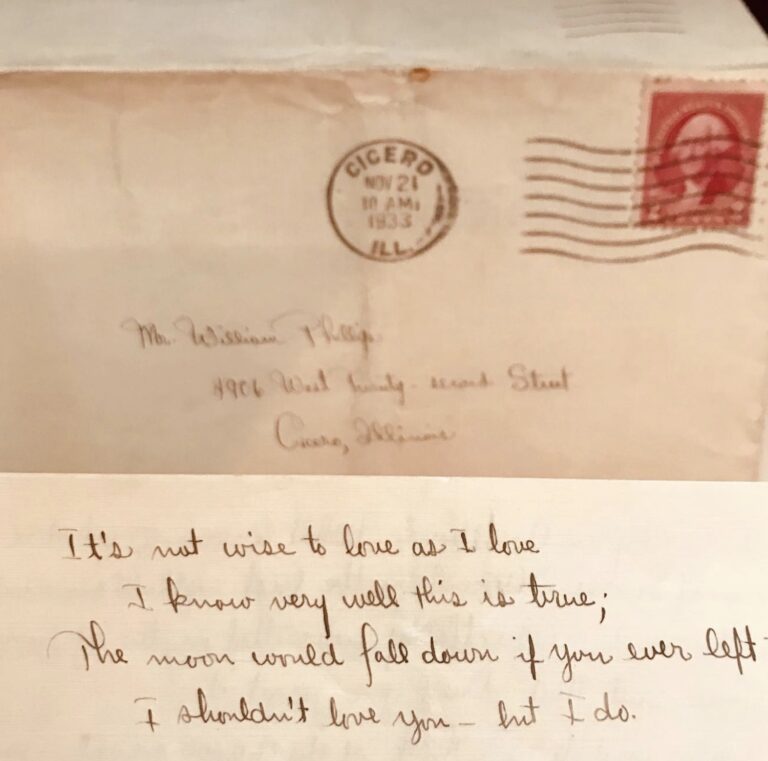 CICERO
NOV 21
10 AM
1933
ILL.
Mr. William Phillips
4906 West Twenty-second Street
Cicero, Illinois
It's not wise to love as I love
I know very well this is true;
The moon would fall down if you ever left
I shouldn't love you – but I do.